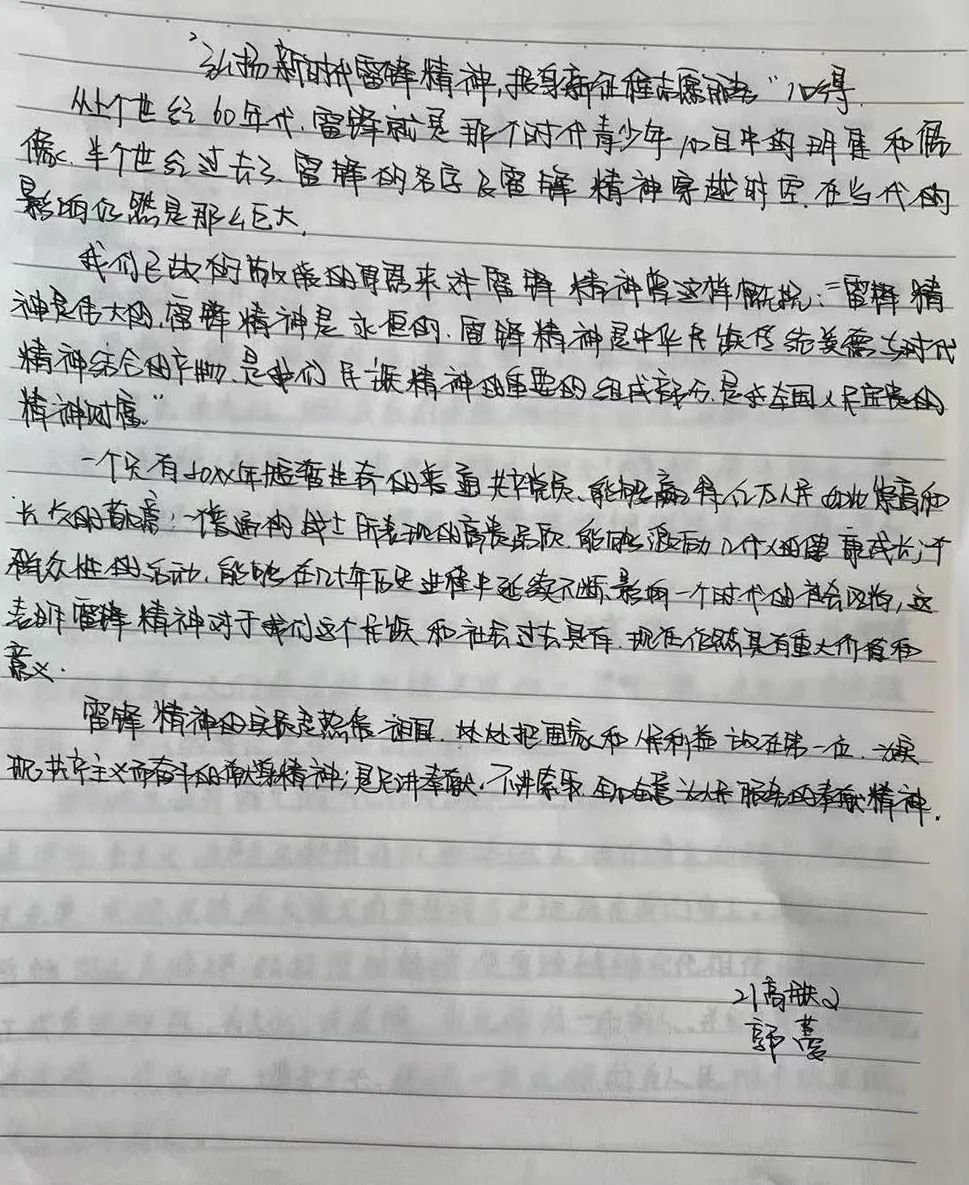 "弘扬新时代雷锋精神,投身新征程志愿服务"心得.
从上个世纪60年代,雷锋就是那个时代青少年心目中的明星和偶
像.半个世纪过去了雷锋的名字及雷锋精神穿越时空.在当代的
影响仍然是那么巨大.
我们已故的敬爱的周恩来对雷锋精神曾这样概括:"雷锋精
神是伟大的,雷锋精神是永恒的.雷锋精神是中华民族传统美德与时代
精神结合的产物.是我们民族精神的重要的组成部分.是全国人民宝贵的
精神财富."
一个只有 年短暂生命的普通共产党员.能够赢得亿万人民如此崇高和
长久的 ;一个普通的战士所表现的高贵品质.能够激励几代人的健康成长;一个
群众性的活动,能够在几十年历史进程中延续不断.影响一个时代的社会风尚,这
表明雷锋精神对于我们这个民族和社会过去具有.现在仍然具有重大价值和
意义.
雷锋精神的实质是热爱祖国.处处把国家和人民利益放在第一位.为实
现共产主义而奋斗的献身精神;是只讲奉献.不讲索取全心全意为人民服务的奉献精神.
21高铁2
郭蔓